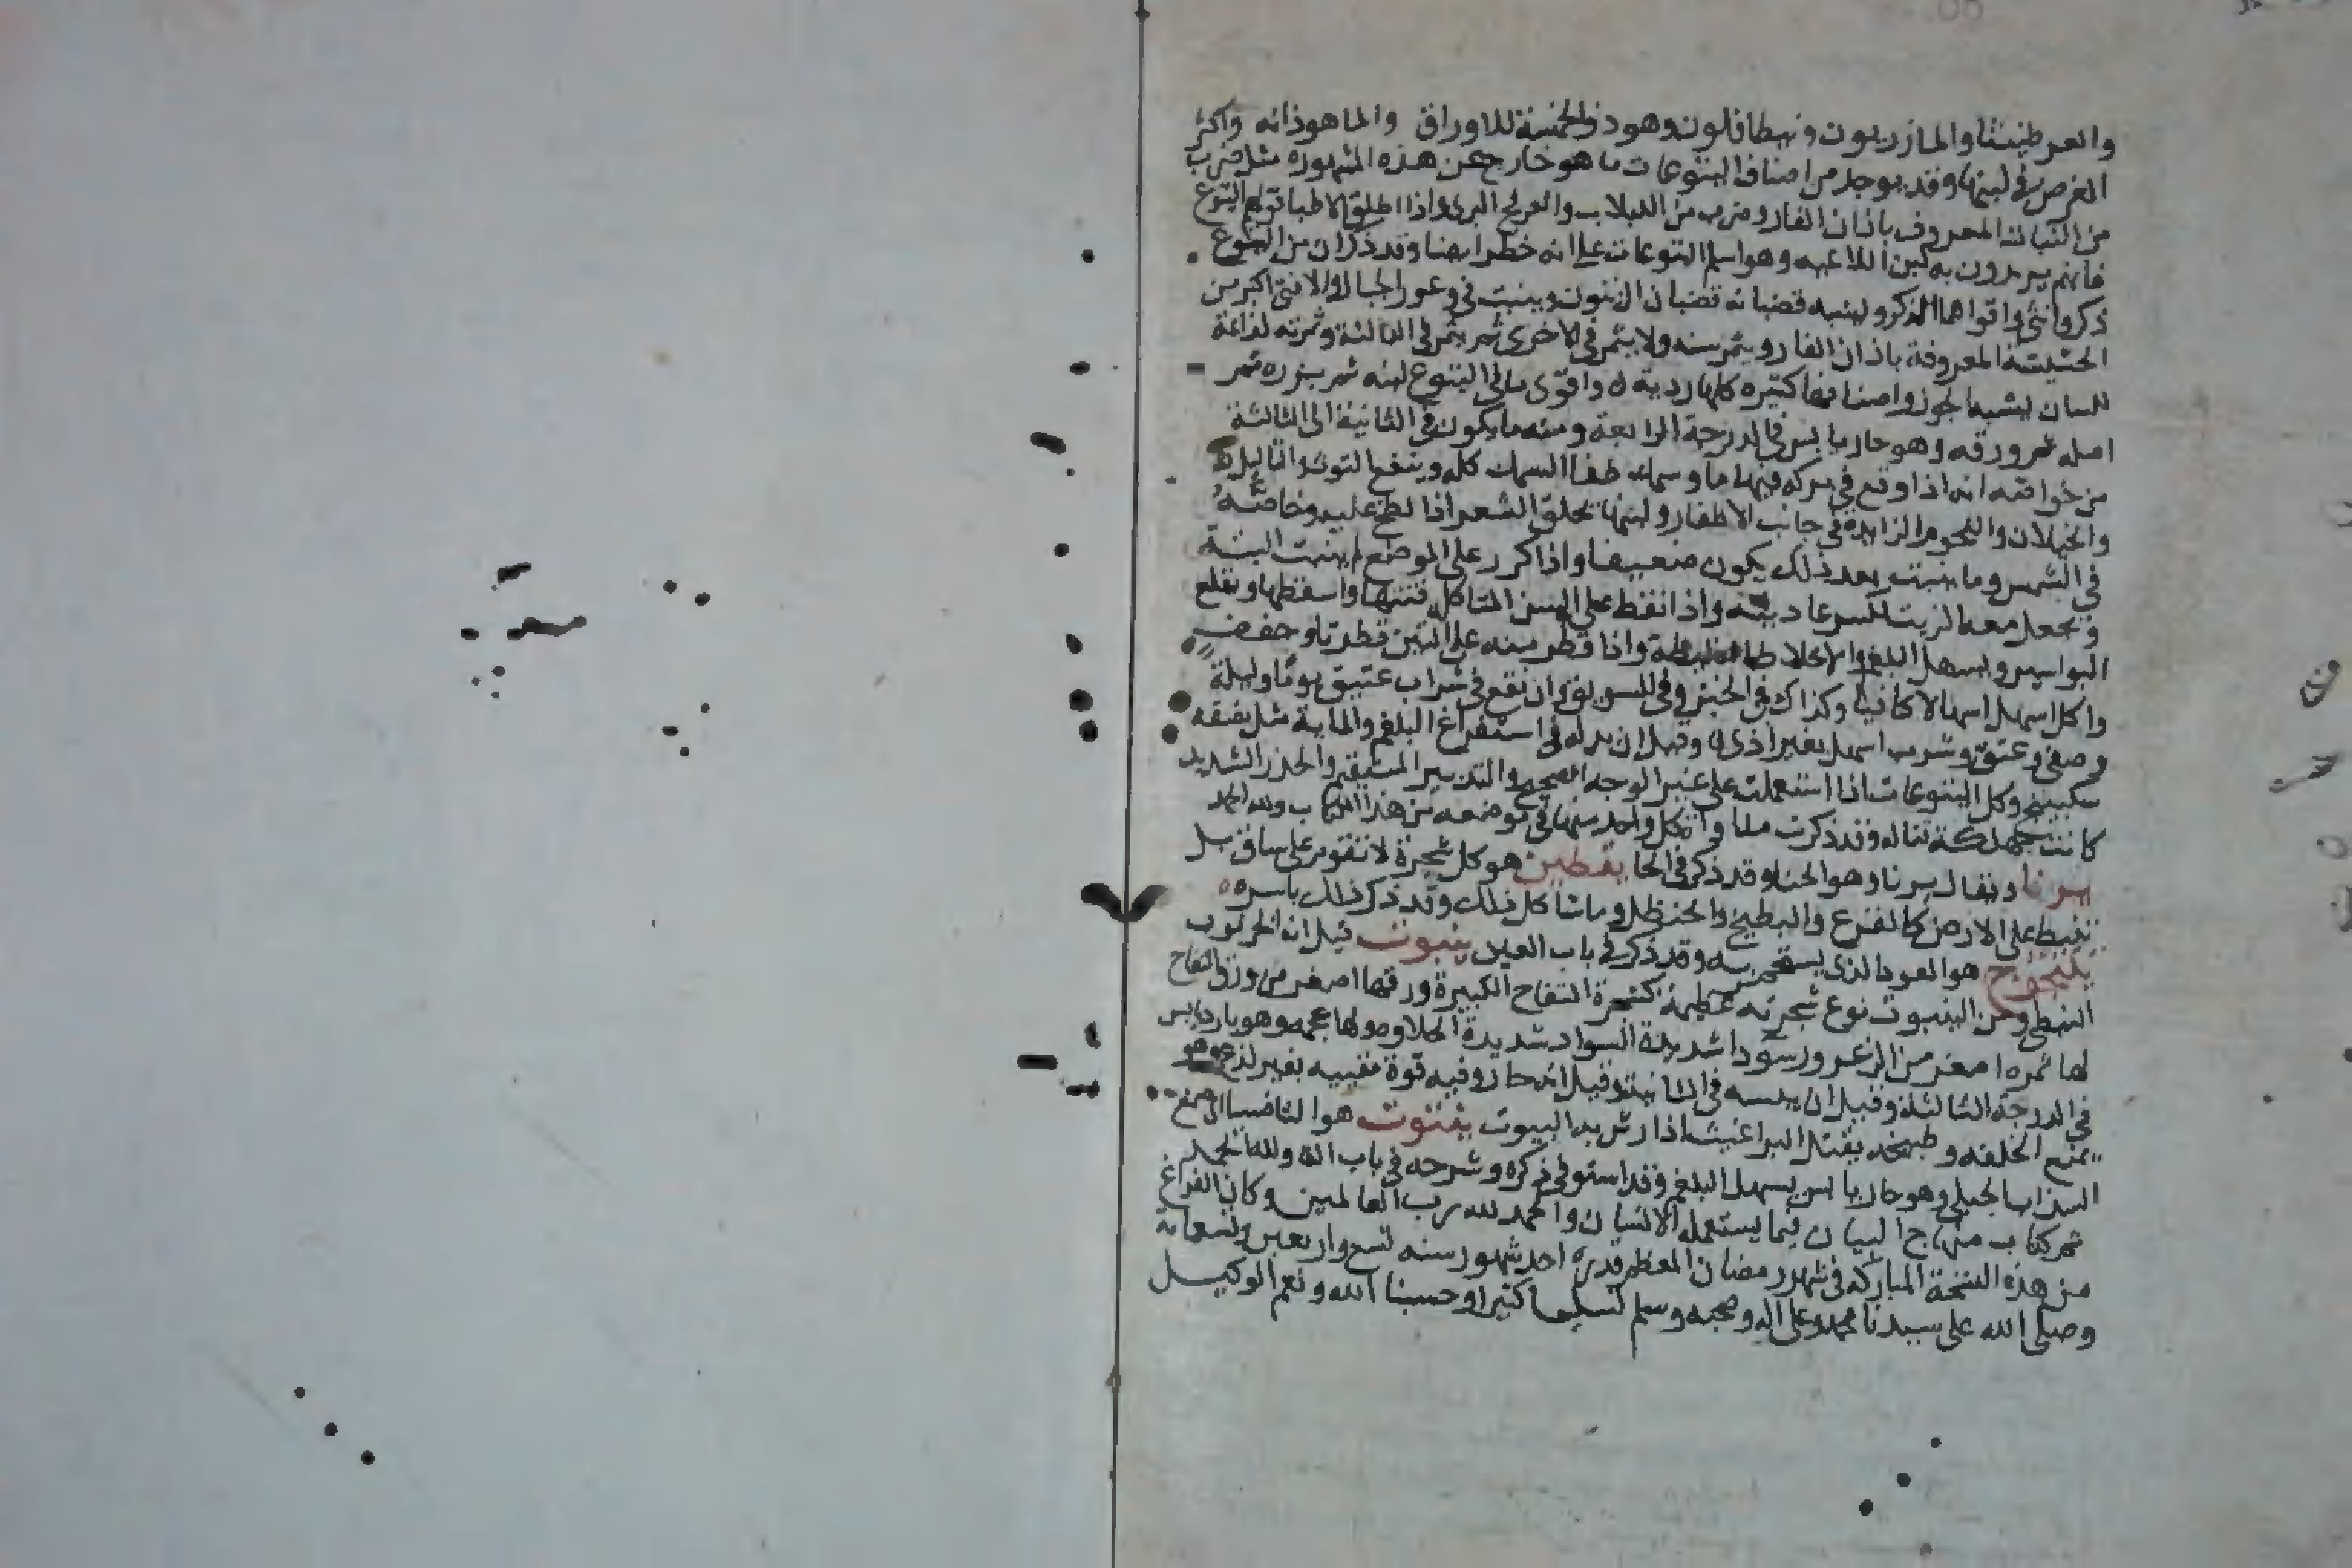 والعرطنيثا والمازريون وبنطافلون وهو ذو الخمسة للاوراق والماهوذانه واكثر
الغرض في لبنها وقد يوجد من اصناف اليتوعات ما هو خارج عن هذه المشهوره مثل ضرب
من النبات المعروف باذان الفار وضرب من اللبلاب والعرفج البري واذا اطلق الاطبا قولهم اليتوع
فانهم يريدون به لبن اللاعيه وهو اسلم اليتوعات على انه خطر ايضا وقد ذكر ان من اليتوع
ذكر وانثى واقواهما الذكر ويشبه قضبانه قضبان الزيتون وينبت في وعور الجبال والانثى اكبر من
الحشيشة المعروفة باذان الفار ويثمر سنه ولا يثمر في الاخرى ثم يثمر في الثالثة وثمرته لذاعة
للسان يشبه الجوز واصنافها كثيره كلها رديه واقوى ما في اليتوع لبنه ثم بزره ثم
اصله ثم ورقه وهو حار يابس في الدرجة الرابعة ومنه ما يكون في الثانية الى الثالثة
من خواصه انه اذا وقع في بركه فيها ما وسمك طفا السمك كله وينفع التوت والثاليل
والخيلان واللحوم الزايدة في جانب الاظفار ولبنها يحلق الشعر اذا لطخ عليه وخاصة
في الشمس وما ينبت بعد ذلك يكون ضعيفا واذا كرر على الموضع لم ينبت البتة
ويجعل معه الزيت لكسر عاديته واذا نقط على السن المتاكل فتتها واسقطها ويقلع
البواسير ويسهل البلغم والاخلاط الغليظة واذا قطر منه على التين قطرتان وجفف
واكل اسهل اسهالا كافيا وكذلك في الخبز وفي السويق وان نقع في شراب عتيق يوما وليلة
وصفي وعتق وشرب اسهل بغير اذى وقيل ان بدله في استفراغ البلغم والمايية مثل نصفه
سكبينج وكل اليتوعات اذا استعملت على غير الوجه الصحيح والتدبير المستقيم والحذر الشديد
كانت مهلكة قتاله وقد ذكرت كل واحد منها في موضعه من هذا الكتاب ولله الحمد
يرنا ويقال يرنا وهو الحنا وقد ذكر في الحا يقطين هو كل شجرة لا تقوم على ساق بل
تنبسط على الارض كالقرع والبطيخ والحنظل وما شاكل ذلك وقد ذكر ذلك باسره
يلنجوج هو العود الذي يستجمر به وقد ذكر في باب العين ينبوت قيل انه الخرنوب
النبطي ومن الينبوت نوع شجرته عظيمة كشجرة التفاح الكبيرة ورقها اصغر من ورق التفاح
لها ثمره اصغر من الزعرور سودا شديدة السواد شديدة الحلاوه ولها عجمه وهو بارد يابس
في الدرجة الثالثة وقيل ان يبسه في الثانية وقيل انه حار وفيه قوة مقييه بغير لذع وهو
يمنع الخلفه وطبيخه يقتل البراغيث اذا رش به البيوت ينتوت هو الثافسيا اي صمغ
السذاب الجبلي وهو حار يابس يسهل البلغم وقد استوفي ذكره وشرحه في باب الثا ولله الحمد
تم كتاب منهاج البيان فيما يستعمله الانسان والحمد لله رب العالمين وكان الفراغ
من هذه النسخة المباركه في شهر رمضان المعظم قدره احد شهور سنه تسع واربعين وتسعمائة
وصلى الله على سيدنا محمد وعلى اله وصحبه وسلم تسليما كثيرا وحسبنا الله ونعم الوكيل